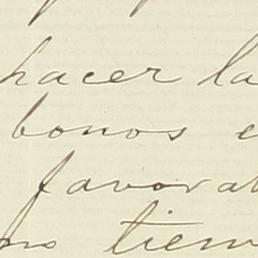 hacer la
bonos
favora
tiem